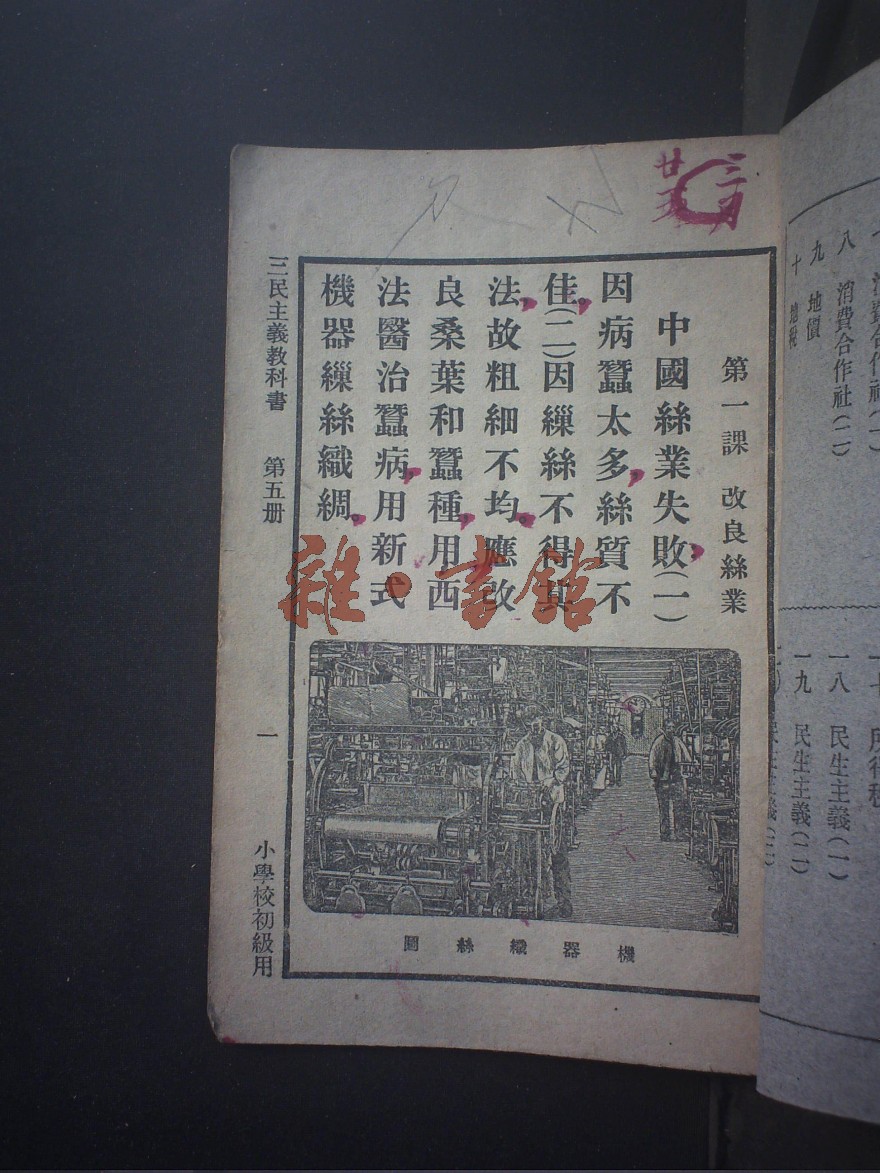 三月
廿五
第一課 改良絲業
中國絲業失敗(一)
因病蠶太多,絲質不
佳。(二)因繅絲不得其
法,故粗細不均。應改
良桑葉和蠶種,用西
法醫治蠶病,用新式
機器繅絲織綢。
機器織絲圖
三民主義教科書 第五册 一 小學校初級用
雜·書館
八 消費合作社(二)
九 地價
十 地稅
一八 民生主義(一)
一九 民生主義(二)